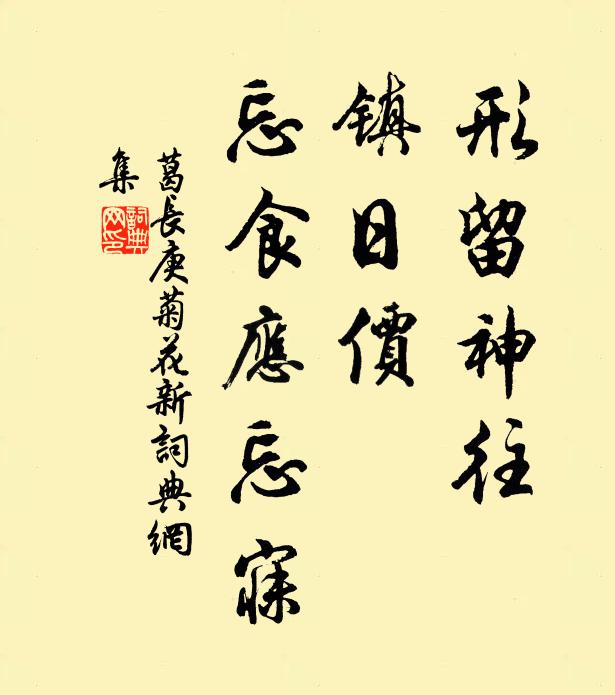 形留神往
鎮日價
忘食應忘寐
葛長庚菊花新詞典網
集
詞典網印